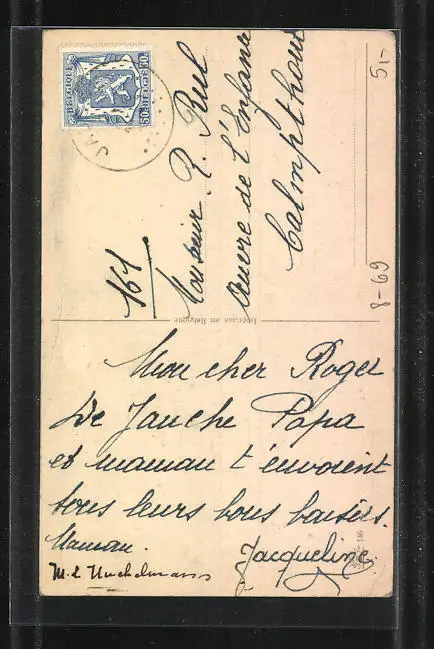 BELGIQUE 50c
50c BELGIE
JA
Monsieur R. Rul
Œuvre de l'Enfance
Calmpthout
161
Imprimé en Belgique
5,-
8-69
Mon cher Roger
De Jauche Papa
et maman t'envoient
tous leurs bons baisers.
Maman. Jacqueline.